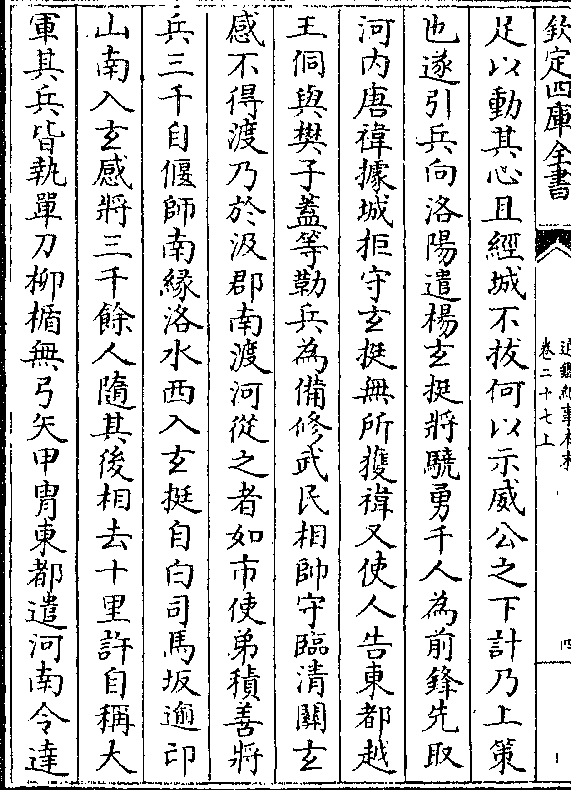 欽定四庫全書
通鑑紀事本末
卷二十七上
四
足以動其心且經城不拔何以示威公之下計乃上策
也遂引兵向洛陽遣楊玄挺將驍勇千人為前鋒先取
河内唐禕據城拒守玄挺無所獲禕又使人告東都越
王侗與樊子蓋等勒兵為備修武民相帥守臨清關玄
感不得渡乃於汲郡南渡河從之者如市使弟積善將
兵三千自偃師南緣洛水西入玄挺自白司馬坂逾邙
山南入玄感將三千餘人隨其後相去十里許自稱大
軍其兵皆執單刀柳楯無弓矢甲胄東都遣河南令達